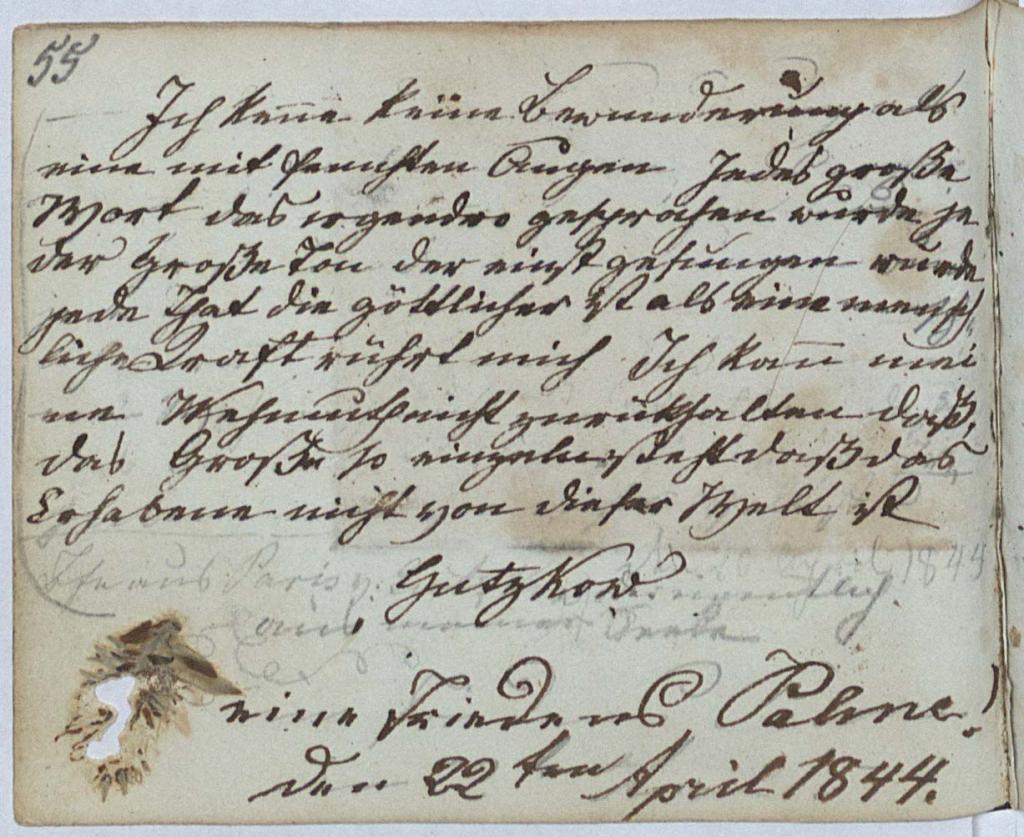 55
Ich kenne keine Bewunderung als
eine mit feuchten Augen Jedes große
Wort das irgendwo gesprochen wurde je
der Große Ton der einst gesungen wurde
jede That die göttlicher ist als eine mensch
liche Kraft rührt mich Ich kann mei
ne Wehmuth nicht zurükhalten daß,
das Große so einzeln steht daß das
Erhabene nicht von dieser Welt ist
20 April 1844
aus Paris Gutzkow
aus meiner
eine Friedens Palme!
den 22ten April 1844.